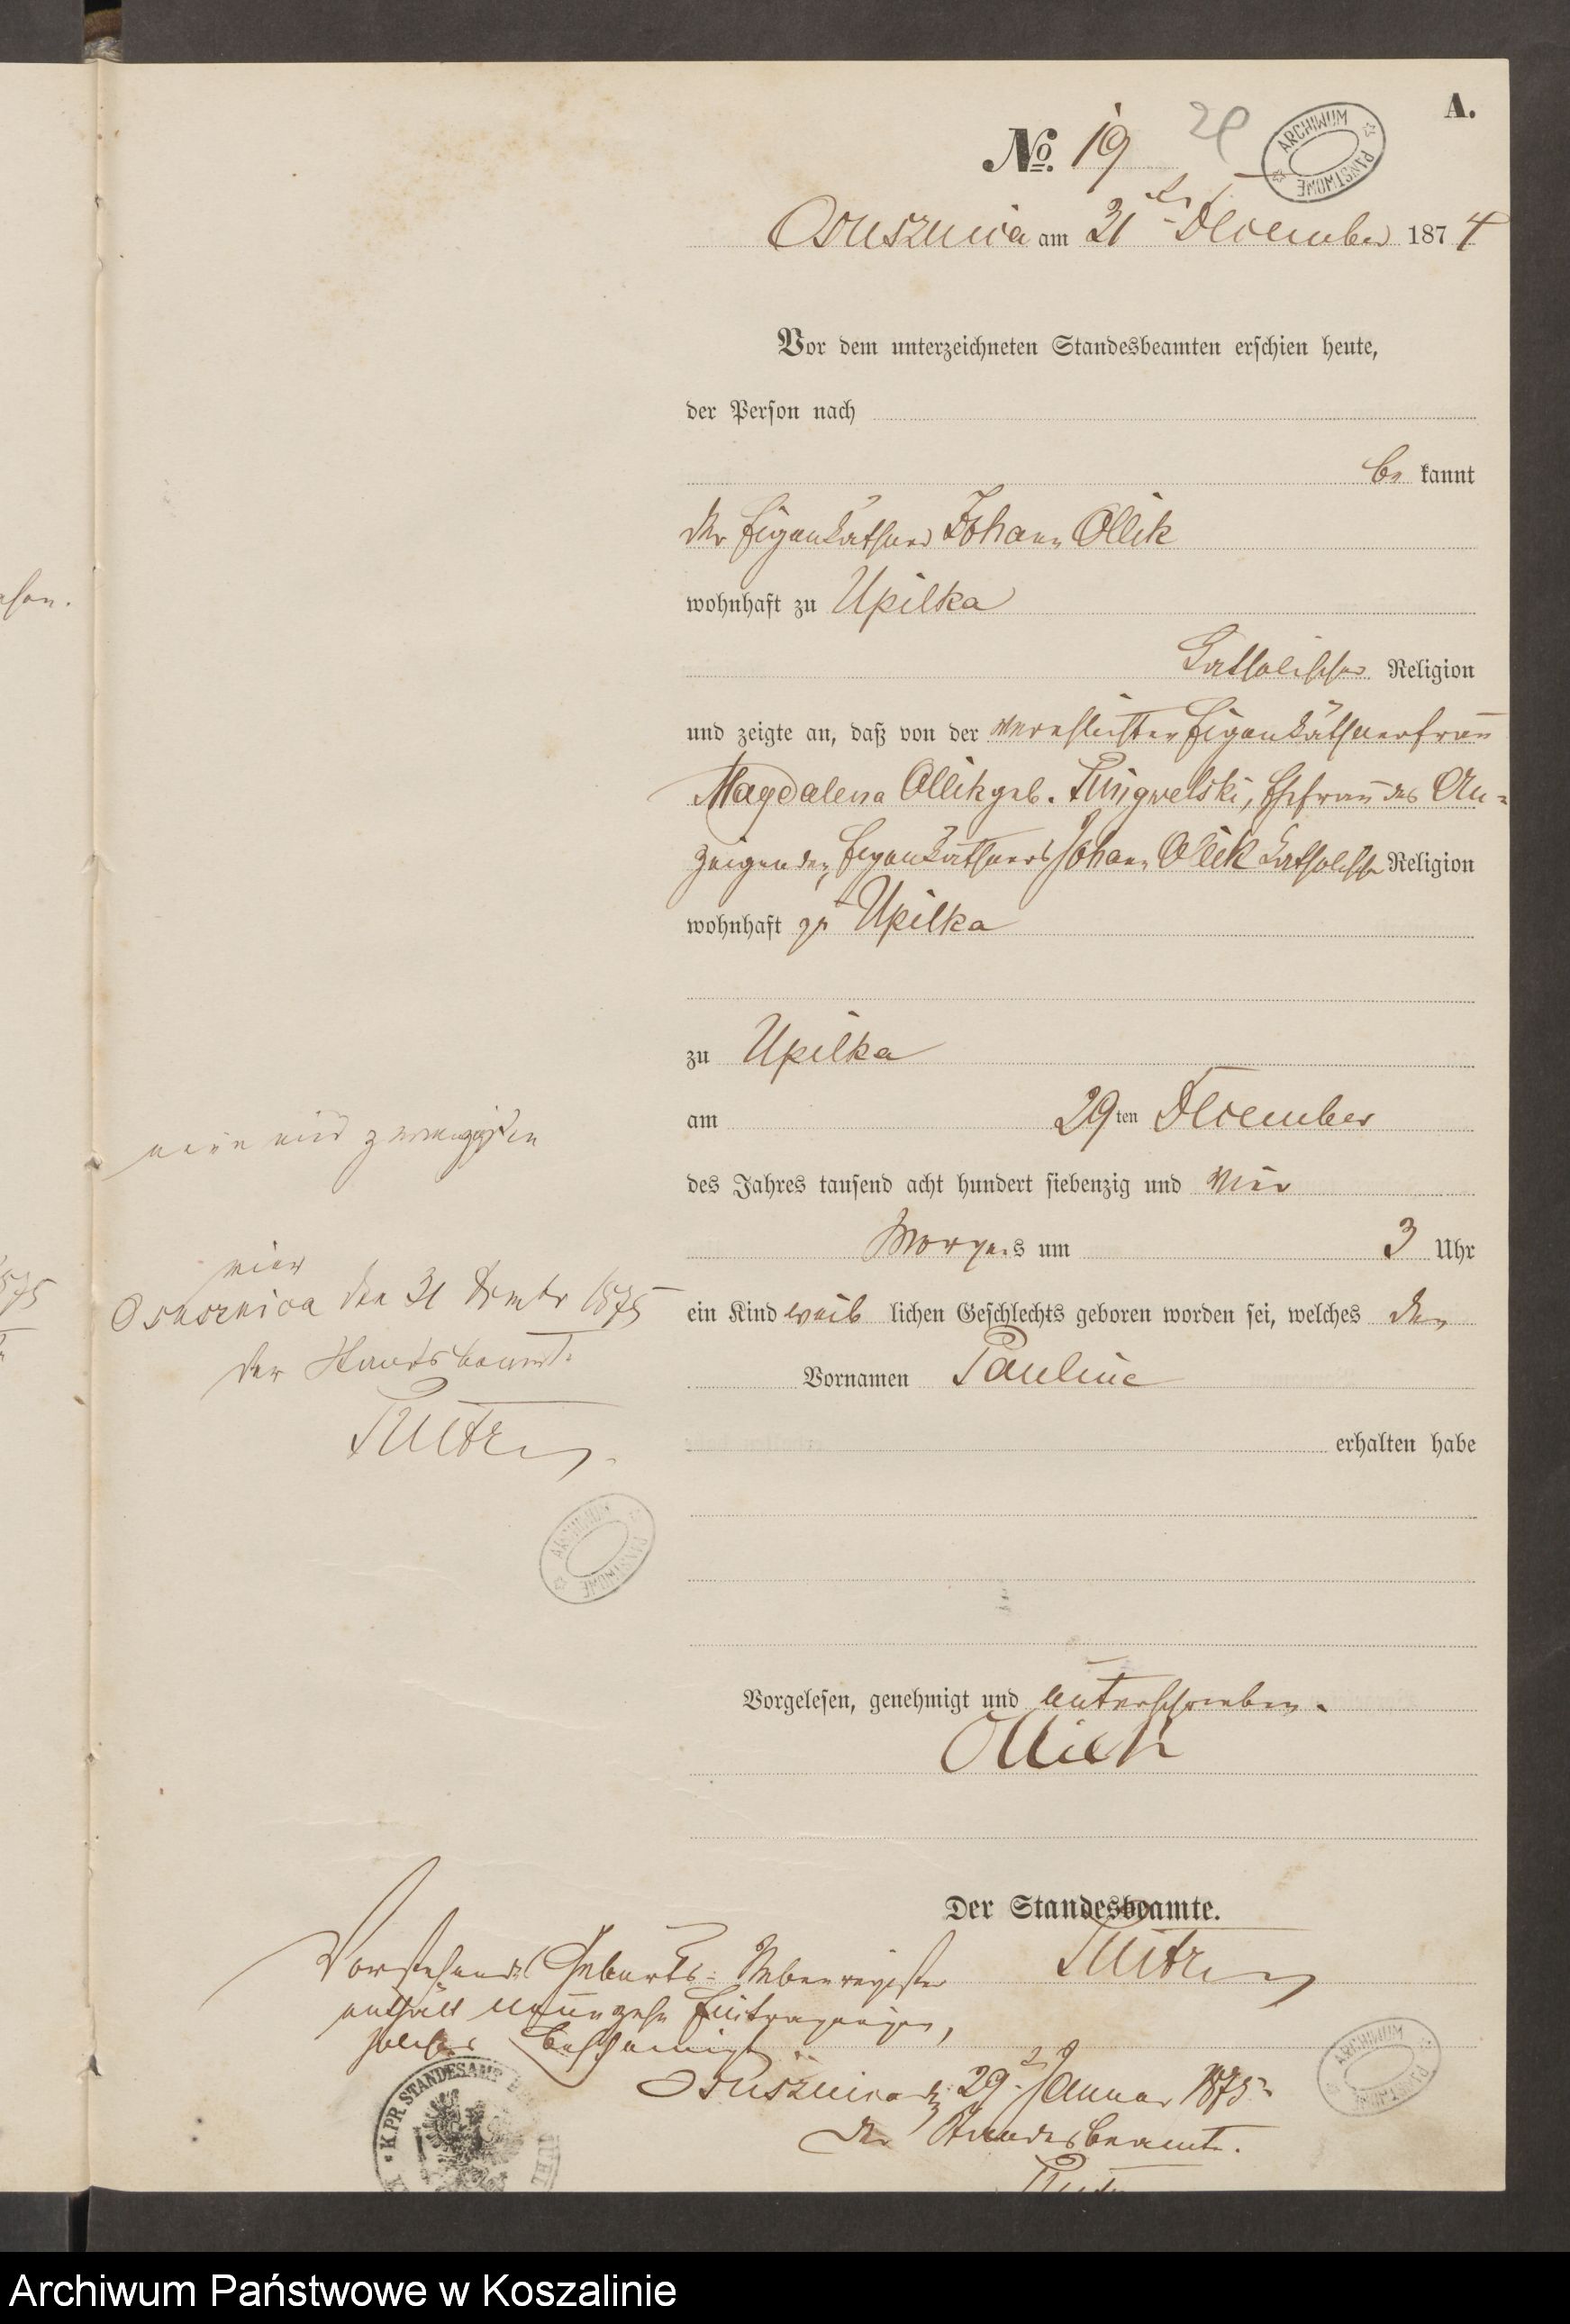 A.
№ 19
ARCHIWUM PAŃSTWOWE
Osusznica am 31ten December 1874
Vor dem unterzeichneten Standesbeamten erschien heute,
der Person nach
be kannt
der Eigenkäthner Johann Ollik
wohnhaft zu Upilka
katholischer Religion
und zeigte an, daß von der verehelichten Eigenkäthnerfrau
Magdalena Ollik geb. Ehefrau des An-
zeigenden, Eigenkäthners Johann Ollik katholischer Religion
wohnhaft zu Upilka
zu Upilka
am 29ten December
des Jahres tausend acht hundert siebenzig und vier
Morgens um 3 Uhr
ein Kind weib lichen Geschlechts geboren worden sei, welches den
Vornamen Pauline
erhalten habe
neun und zwanzigsten
vier
Osusznica den 31 1875
der Standesbeamte
ARCHIWUM PAŃSTWOWE
Vorgelesen, genehmigt und unterschrieben.
Ollick
Der Standesbeamte.
Vorstehendes Geburts-Nebenregister
enthält neunzehn Eintragungen,
solches bescheinigt
Osusznica d. 29. Januar 1875.
der Standesbeamte.
K. PR. STANDESAMT
ARCHIWUM PAŃSTWOWE
Archiwum Państwowe w Koszalinie